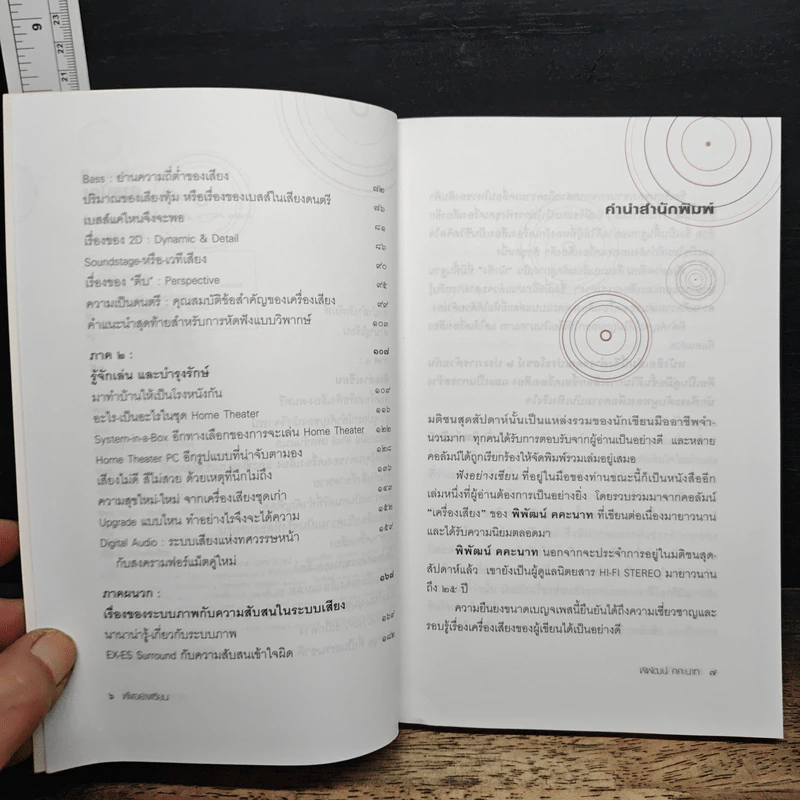 9
23
22
21
Bass : ย่านความถี่ต่ำของเสียง ๗๒
ปริมาณของเสียงทุ้ม หรือเรื่องของเบสส์ในเสียงดนตรี ๗๖
เบสส์แค่ไหนจึงจะพอ ๘๑
เรื่องของ 2D : Dynamic & Detail ๘๖
Soundstage-หรือ-เวทีเสียง ๙๐
เรื่องของ “ตื้น” : Perspective ๙๕
ความเป็นดนตรี : คุณสมบัติข้อสำคัญของเครื่องเสียง ๙๙
คำแนะนำสุดท้ายสำหรับการหัดฟังแบบวิพากษ์ ๑๐๓
ภาค ๒ : ๑๐๗
รู้จักเล่น และบำรุงรักษ์
มาทำบ้านให้เป็นโรงหนังกัน ๑๐๙
อะไร-เป็นอะไรในชุด Home Theater ๑๑๖
System-in-a-Box อีกทางเลือกของการจะเล่น Home Theater ๑๒๒
Home Theater PC อีกรูปแบบที่น่าจับตามอง ๑๒๘
เสียงไม่ดี สีไม่สวย ด้วยเหตุที่นึกไม่ถึง ๑๓๖
ความสุขใหม่-ใหม่ จากเครื่องเสียงชุดเก่า ๑๔๙
Upgrade แบบไหน ทำอย่างไรจึงจะได้ความ ๑๕๒
Digital Audio : ระบบเสียงแห่งทศวรรษหน้า ๑๕๙
กับสงครามฟอร์แม็ตคู่ใหม่
ภาคผนวก : ๑๖๗
เรื่องของระบบภาพกับความสับสนในระบบเสียง
นานาน่ารู้-เกี่ยวกับระบบภาพ ๑๖๙
EX-ES Surround กับความสับสนเข้าใจผิด ๑๘๒
๖ ฟังอย่างเซียน
คำนำสำนักพิมพ์
มติชนสุดสัปดาห์นั้นเป็นแหล่งรวมของนักเขียนมืออาชีพจำ-
นวนมาก ทุกคนได้รับการตอบรับจากผู้อ่านเป็นอย่างดี และหลาย
คอลัมน์ได้ถูกเรียกร้องให้จัดพิมพ์รวมเล่มอยู่เสมอ
ฟังอย่างเซียน ที่อยู่ในมือของท่านขณะนี้ก็เป็นหนังสืออีก
เล่มหนึ่งที่ผู้อ่านต้องการเป็นอย่างยิ่ง โดยรวบรวมมาจากคอลัมน์
“เครื่องเสียง” ของ พิพัฒน์ คคะนาท ที่เขียนต่อเนื่องมายาวนาน
และได้รับความนิยมตลอดมา
พิพัฒน์ คคะนาท นอกจากจะประจำการอยู่ในมติชนสุด-
สัปดาห์แล้ว เขายังเป็นผู้ดูแลนิตยสาร HI-FI STEREO มายาวนาน
ถึง ๒๕ ปี
ความยืนยงขนาดเบญจเพสนี้ยืนยันได้ถึงความเชี่ยวชาญและ
รอบรู้เรื่องเครื่องเสียงของผู้เขียนได้เป็นอย่างดี
พิพัฒน์ คคะนาท ๗